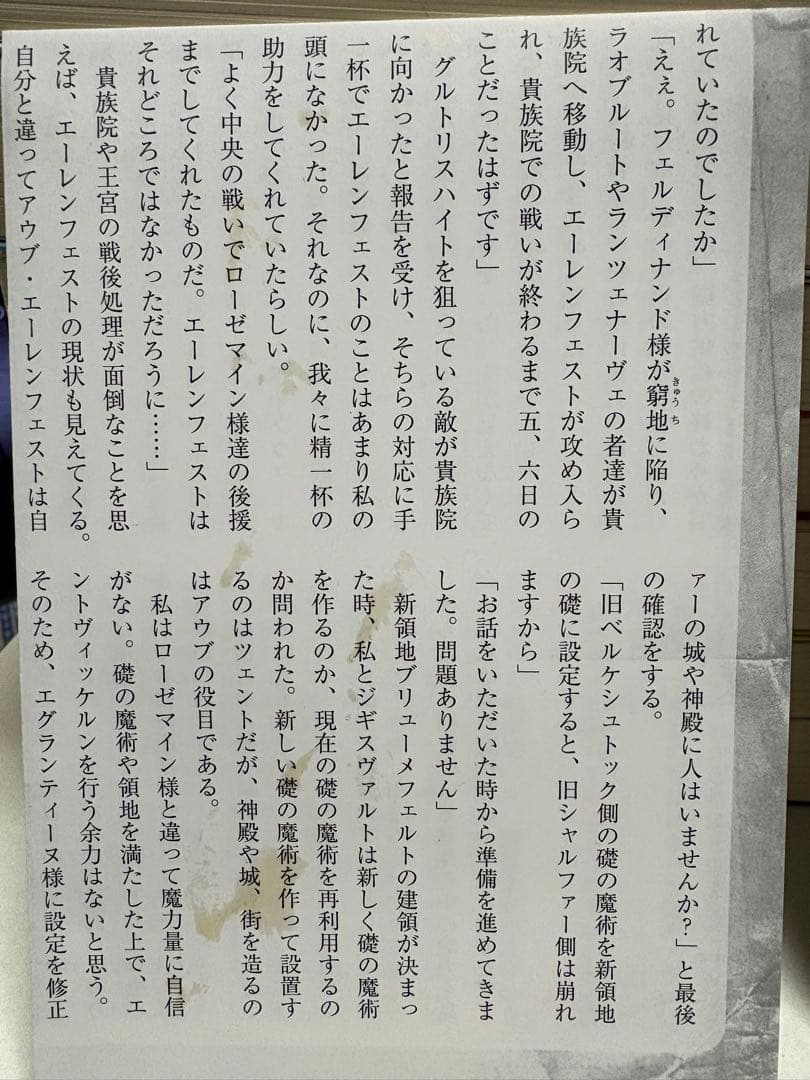 れていたのでしたか」
「ええ。フェルディナンド様が窮地に陥り、
ラオブルートやランツェナーヴェの者達が貴
族院へ移動し、エーレンフェストが攻め入ら
れ、貴族院での戦いが終わるまで五、六日の
ことだったはずです」
　グルトリスハイトを狙っている敵が貴族院
に向かったと報告を受け、そちらの対応に手
一杯でエーレンフェストのことはあまり私の
頭になかった。それなのに、我々に精一杯の
助力をしてくれていたらしい。
「よく中央の戦いでローゼマイン様達の後援
までしてくれたものだ。エーレンフェストは
それどころではなかっただろうに……」
　貴族院や王宮の戦後処理が面倒なことを思
えば、エーレンフェストの現状も見えてくる。
自分と違ってアウブ・エーレンフェストは自
ァーの城や神殿に人はいませんか？」と最後
の確認をする。
「旧ベルケシュトック側の礎の魔術を新領地
の礎に設定すると、旧シャルファー側は崩れ
ますから」
「お話をいただいた時から準備を進めてきま
した。問題ありません」
　新領地ブリューメフェルトの建領が決まっ
た時、私とジギスヴァルトは新しく礎の魔術
を作るのか、現在の礎の魔術を再利用するの
か問われた。新しい礎の魔術を作って設置す
るのはツェントだが、神殿や城、街を造るの
はアウブの役目である。
　私はローゼマイン様と違って魔力量に自信
がない。礎の魔術や領地を満たした上で、エ
ントヴィッケルンを行う余力はないと思う。
そのため、エグランティーヌ様に設定を修正